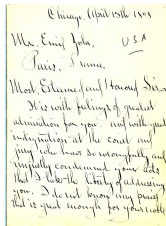 Chicago, April 13th 1898
Mr. Emil Zola,
USA
Paris, France.
Most Esteemed and Honored Sir:
It is with feelings of great
admiration for you and with great
indignation at the court and
jury who have so wrongfully and
unjustly condemned your acts
that I take the liberty of addressing
you. I do not know any
that is great enough for your noble